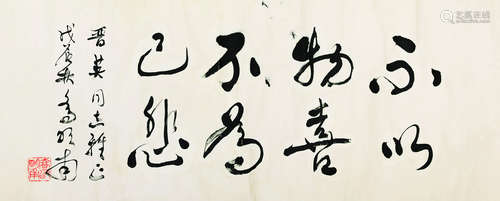 不以
物喜
不為
己悲
晋英同志雅正
戊辰秋